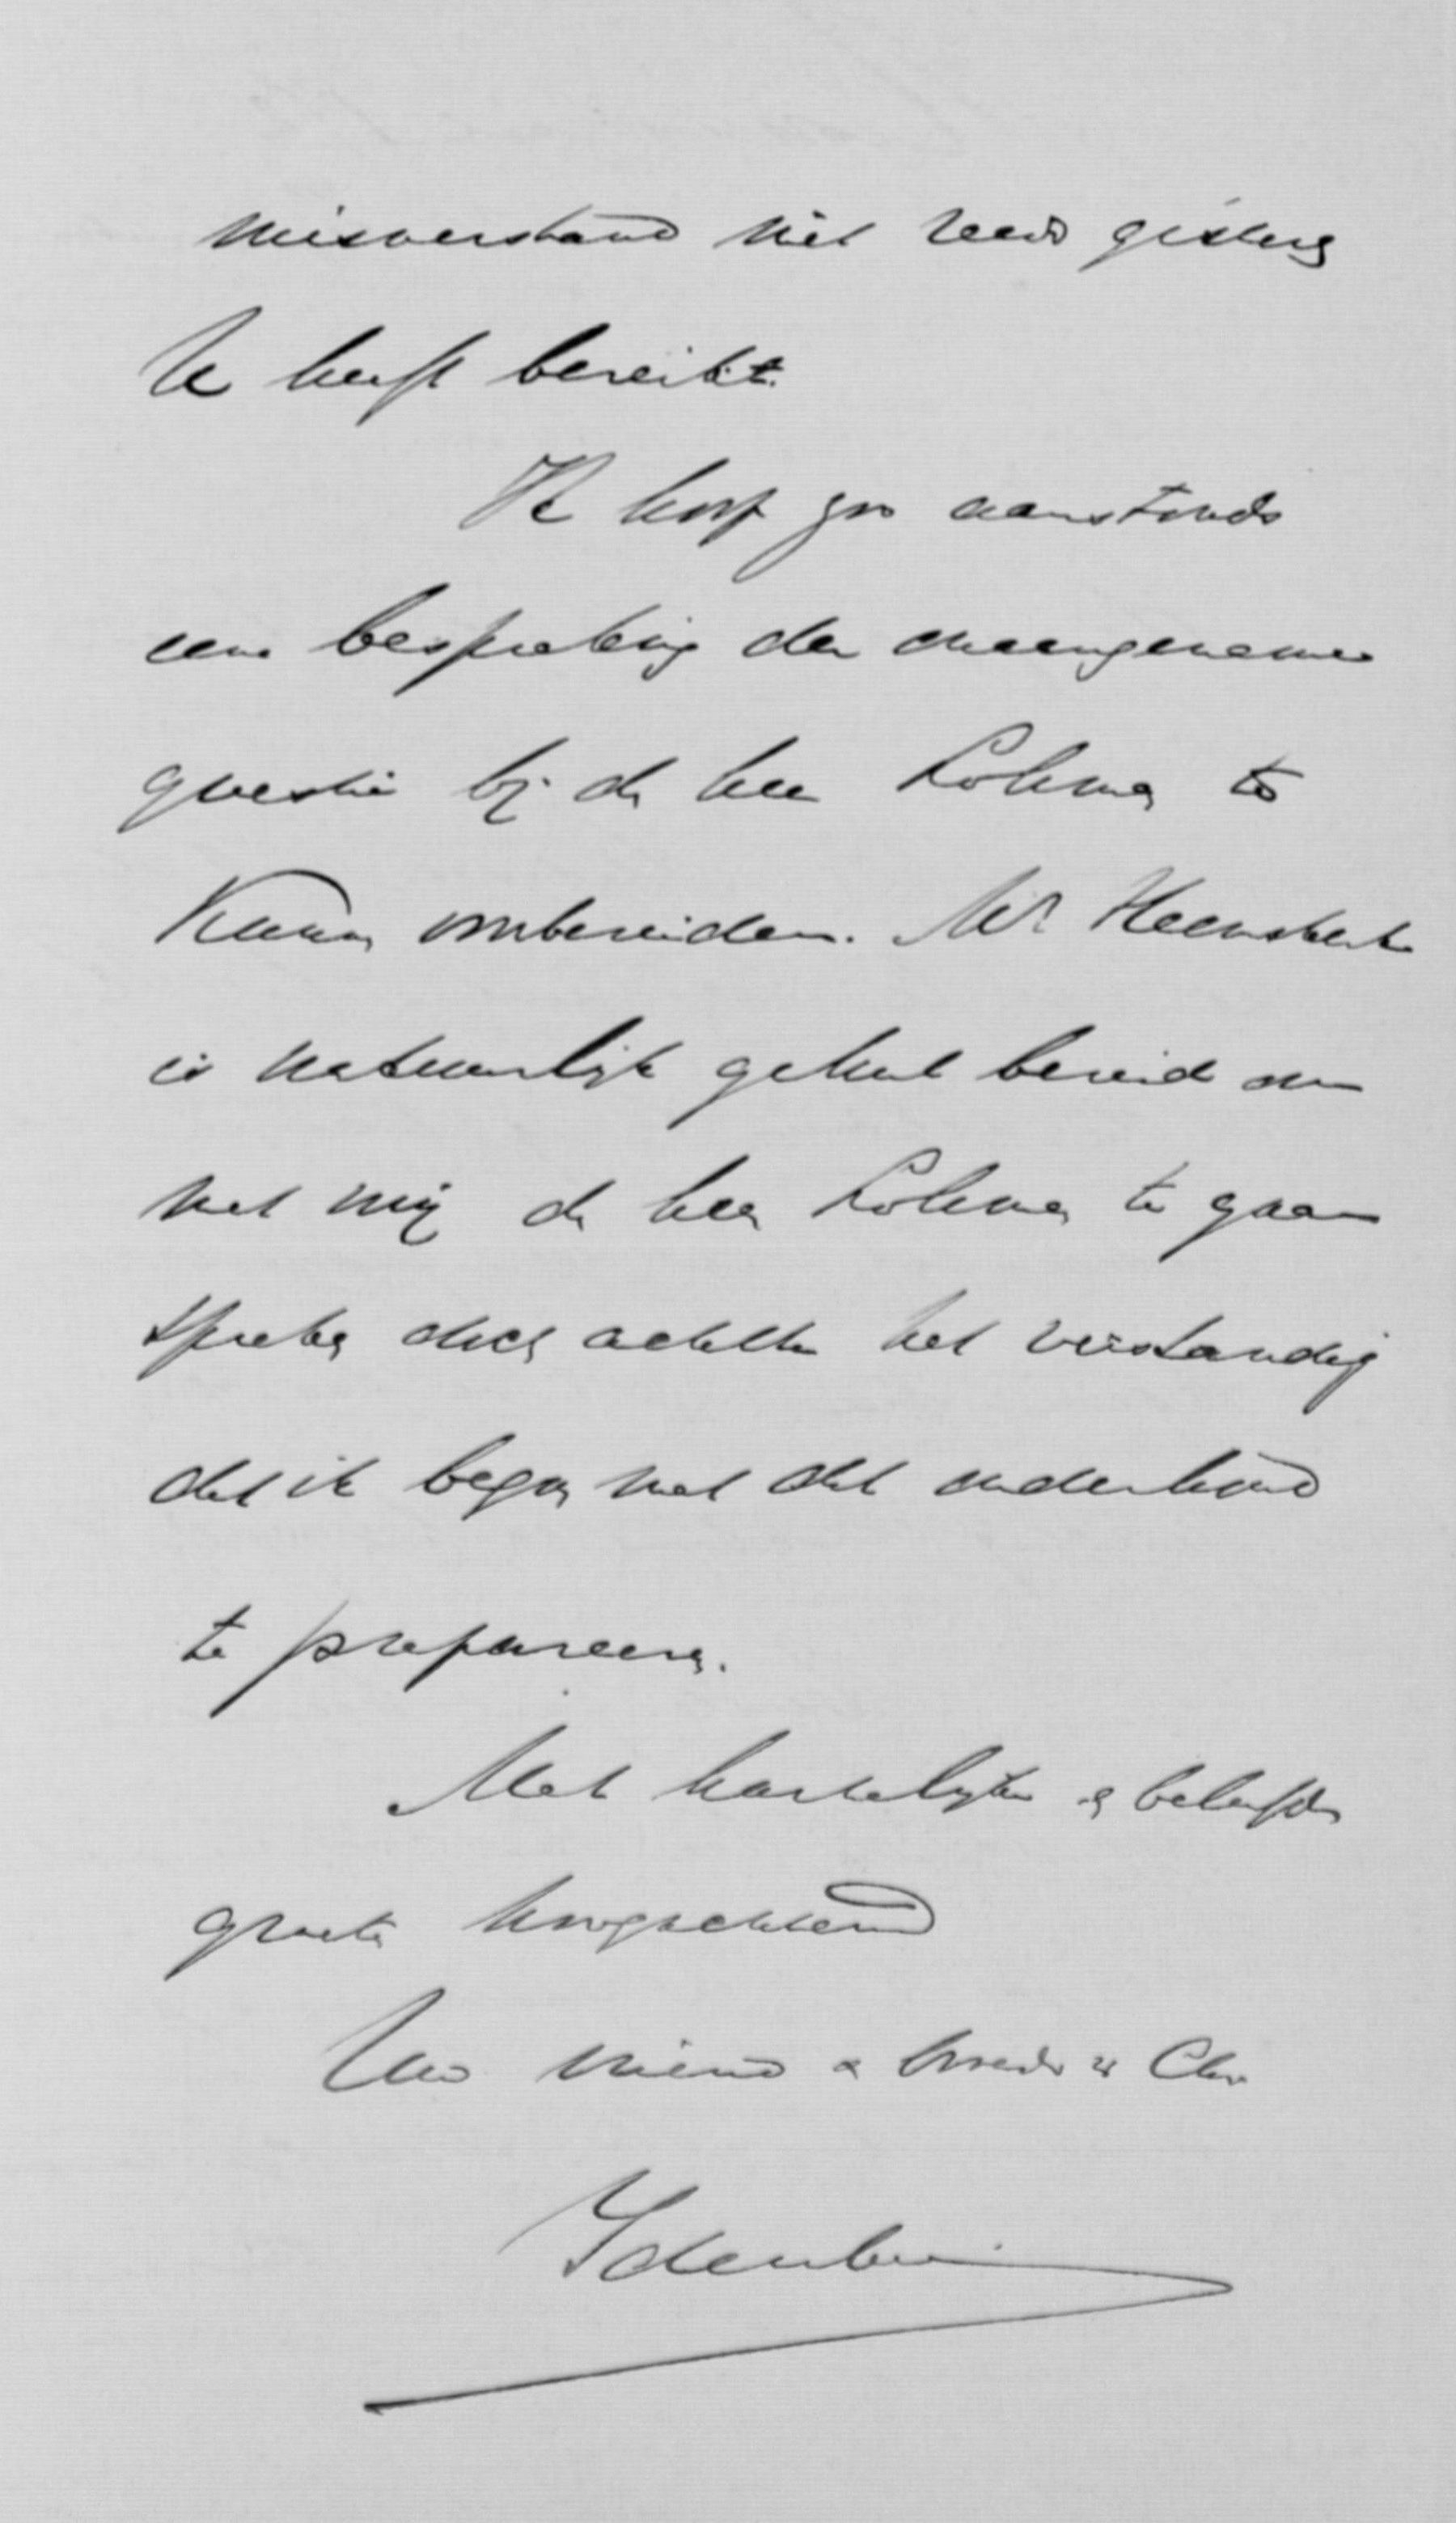 misverstand niet reeds gisteren
U heeft bereikt.
Ik hoop zoo aanstonds
eene bespreking der onaangename
questie bij de heer Lohman te
kunnen voorbereiden. Mr Heemskerk
is natuurlijk geheel bereid om
met mij de heer Lohman te gaan
spreken doch achtte het verstandig
dat ik begon met dat onderhoud
te prepareeren.
Met hartelijken en beleefden
groete hoogachtend
Uw vriend & broeder in Chr.
Idenburg